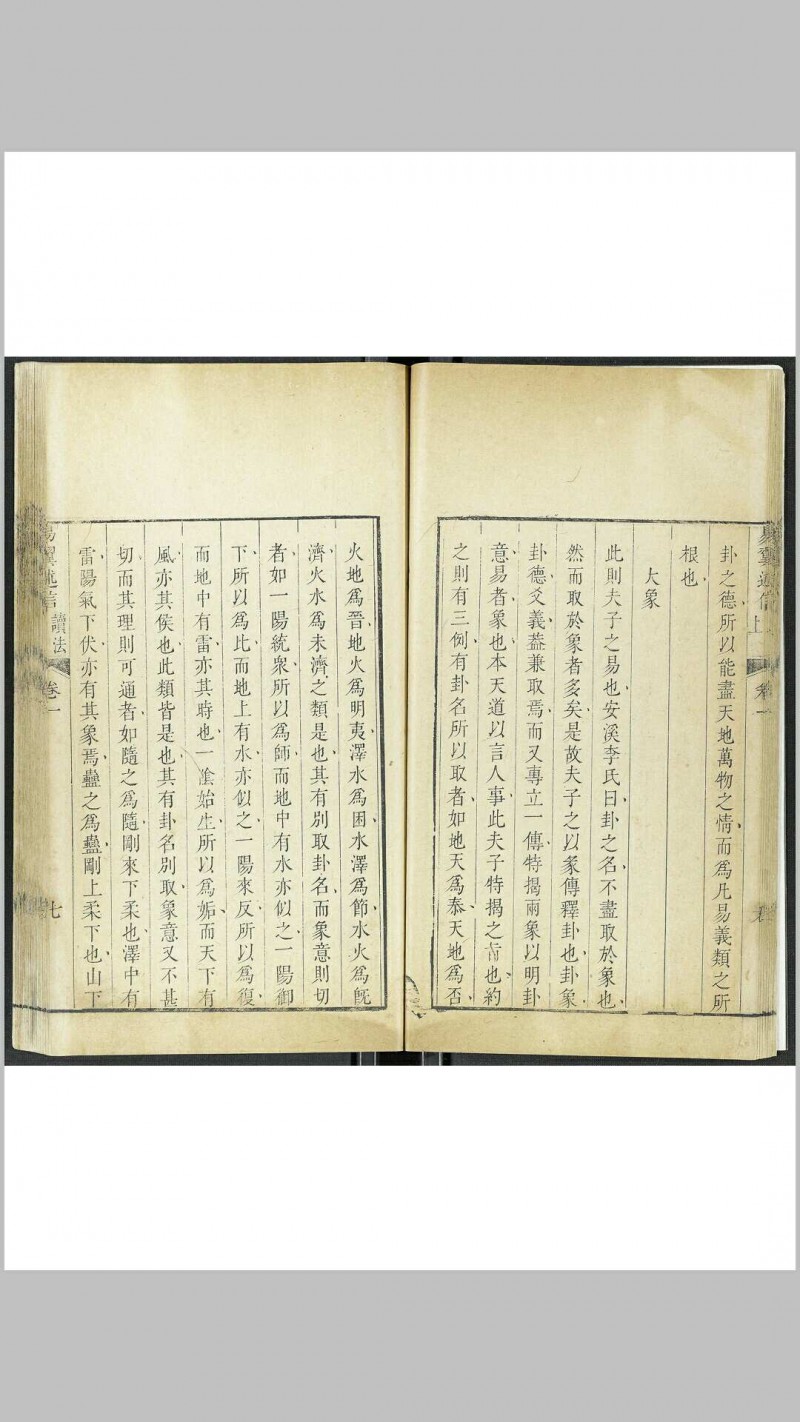 卦之德所以能盡天地萬物之情而爲凡易義類之所
根也
大象
此則夫子之易也安溪李氏曰卦之名不盡取於象也
然而取於象者多矣是故夫子之以彖傳釋卦也卦象
卦德爻義葢兼取焉而又專立一傳特揭兩象以明卦
意易者象也本天道以言人事此夫子特揭之旨也約
之則有三例有卦名所以取者如地天爲泰天地爲否
火地爲晉地火爲明夷澤水爲困水澤爲節水火爲旣
濟火水爲未濟之類是也其有別取卦名而象意則切
者如一陽統衆所以爲師而地中有水亦似之一陽御
下所以爲比而地上有水亦似之一陽來反所以爲復
而地中有雷亦其時也一隂始生所以爲姤而天下有
風亦其侯也此類皆是也其有卦名別取象意又不甚
切而其理則可通者如隨之爲隨剛來下柔也澤中有
雷陽氣下伏亦有其象焉蠱之爲蠱剛上柔下也山下
易翼述信
讀法
卷一
七